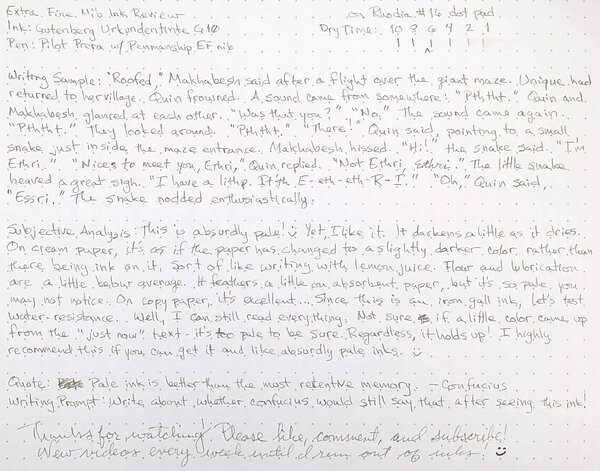 Extra Fine Nib Ink Review on Rhodia #16 dot pad
Ink: Gutenberg Urkundentinte G10 Dry Time: 10 8 6 4 2 1
Pen: Pilot Prera w/ Penmanship EF nib
Writing Sample: "Roofed," Makhabesh said after a flight over the giant maze. Unique had
returned to her village. Quin frowned. A sound came from somewhere: "Pththt." Quin and
Makhabesh glanced at each other. "Was that you?" "No." The sound came again.
"Pththt." They looked around. "Pththt." "There!" Quin said, pointing to a small
snake just inside the maze entrance. Makhabesh hissed. "Hi!" the snake said. "I'm
Ethri." "Nice to meet you, Ethri," Quin replied. "Not Ethri, Ethri." The little snake
heaved a great sigh. "I have a lithp. It'th E-eth-eth-R-I." "Oh," Quin said,
"Essri." The snake nodded enthusiastically.
Subjective Analysis: This is absurdly pale! Yet, I like it. It darkens a little as it dries.
On cream paper, it's as if the paper has changed to a slightly darker color rather than
there being ink on it. Sort of like writing with lemon juice. Flow and lubrication
are a little below average. It feathers a little on absorbent paper, but it's so pale, you
may not notice. On copy paper, it's excellent.... Since this is an iron gall ink, let's test
water-resistance. Well, I can still read everything. Not sure if a little color came up
from the "just now" text - it's too pale to be sure. Regardless, it holds up! I highly
recommend this if you can get it and like absurdly pale inks.
Quote: Pale ink is better than the most retentive memory. - Confucius
Writing Prompt: Write about whether Confucius would still say that after seeing this ink!
Thanks for watching! Please like, comment, and subscribe!
New videos every week until I run out of inks!